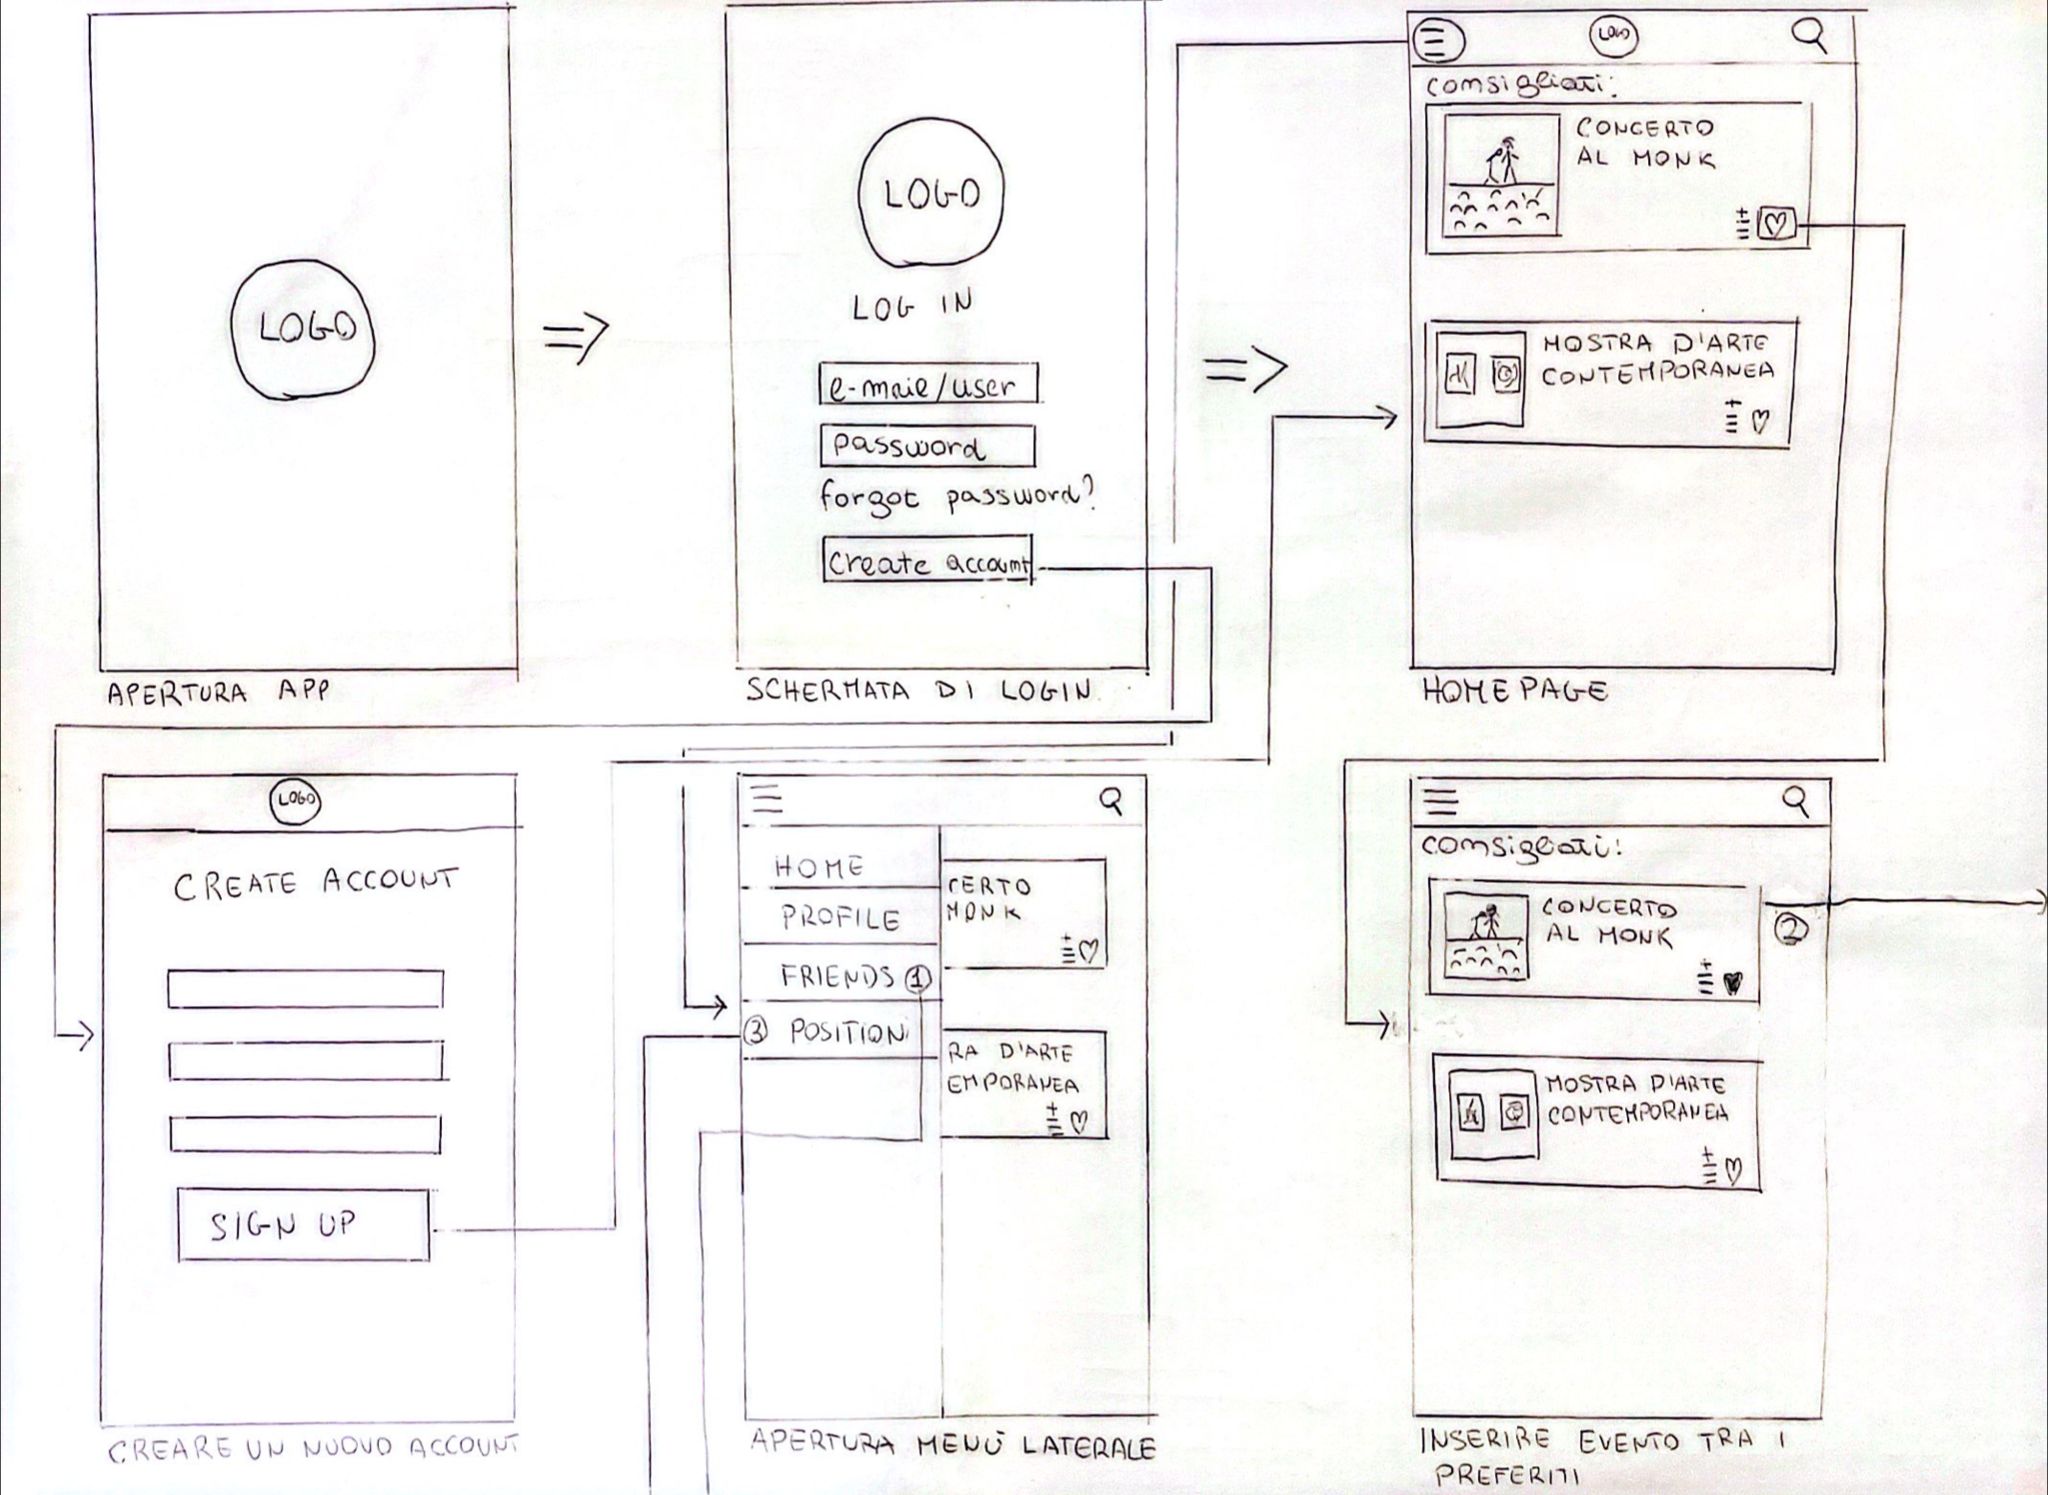 LOGO
APERTURA APP
LOGO
LOG IN
e-mail/user
password
forgot password?
Create account
SCHERMATA DI LOGIN
LOGO
consigliati:
CONCERTO
AL MONK
MOSTRA D'ARTE
CONTEMPORANEA
HOMEPAGE
LOGO
CREATE ACCOUNT
SIGN UP
CREARE UN NUOVO ACCOUNT
HOME
PROFILE
FRIENDS 1
3 POSITION
CERTO
MONK
RA D'ARTE
EMPORANEA
APERTURA MENÙ LATERALE
consigliati:
CONCERTO
AL MONK
2
MOSTRA D'ARTE
CONTEMPORANEA
INSERIRE EVENTO TRA I
PREFERITI